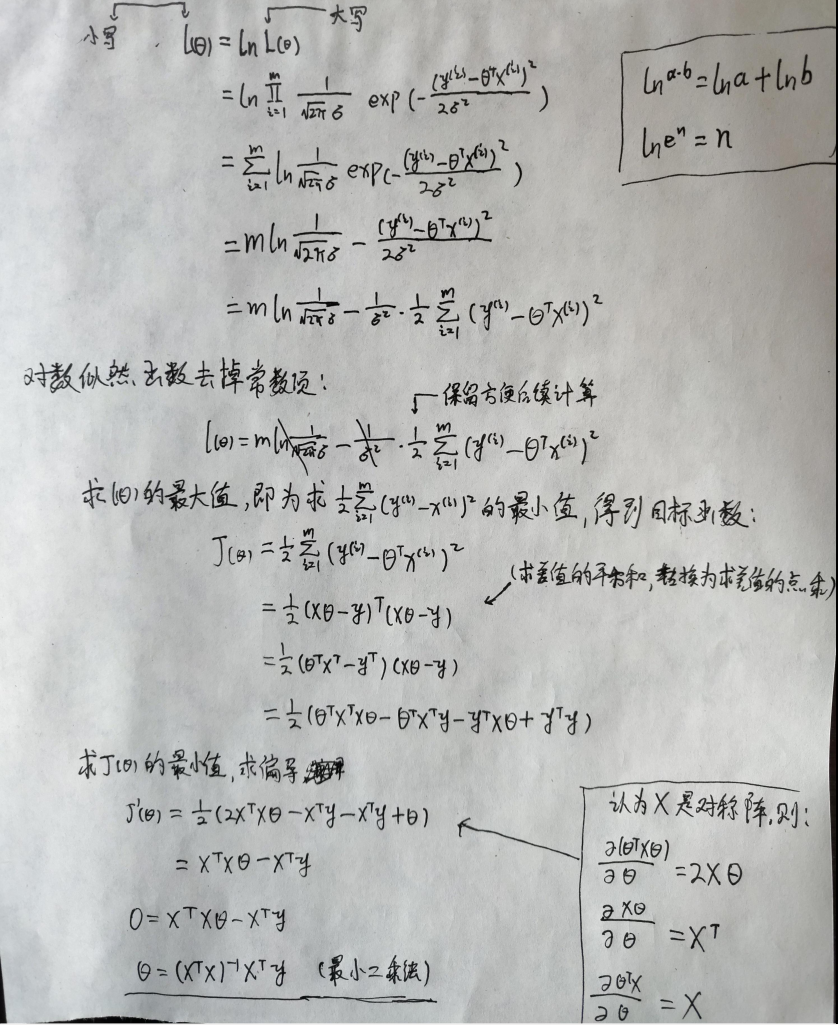 小写 大写
l(θ) = ln L(θ)
= ln ∏_{i=1}^{m} 1/(√2π σ) exp(-(y^{(i)}-θ^T x^{(i)})^2/2σ^2)
= ∑_{i=1}^{m} ln 1/(√2π σ) exp(-(y^{(i)}-θ^T x^{(i)})^2/2σ^2)
= m ln 1/(√2π σ) - (y^{(i)}-θ^T x^{(i)})^2/2σ^2
= m ln 1/(√2π σ) - 1/σ^2 · 1/2 ∑_{i=1}^{m} (y^{(i)}-θ^T x^{(i)})^2
ln^{a·b} = ln a + ln b
ln e^n = n
对数似然函数去掉常数项:
保留方便后续计算
l(θ) = m ln 1/(√2π σ) - 1/σ^2 · 1/2 ∑_{i=1}^{m} (y^{(i)}-θ^T x^{(i)})^2
求l(θ)的最大值,即为求 1/2 ∑_{i=1}^{m} (y^{(i)}-x^{(i)})^2 的最小值,得到目标函数:
J(θ) = 1/2 ∑_{i=1}^{m} (y^{(i)}-θ^T x^{(i)})^2
(求差值的平方和,转换为求差值的点乘)
= 1/2 (Xθ-y)^T (Xθ-y)
= 1/2 (θ^T X^T - y^T) (Xθ-y)
= 1/2 (θ^T X^T Xθ - θ^T X^T y - y^T Xθ + y^T y)
求J(θ)的最小值,求偏导
J'(θ) = 1/2 (2X^T Xθ - X^T y - X^T y + θ)
= X^T Xθ - X^T y
0 = X^T Xθ - X^T y
θ = (X^T X)^{-1} X^T y (最小二乘法)
认为X是对称阵,则:
∂(θ^T Xθ)/∂θ = 2Xθ
∂Xθ/∂θ = X^T
∂θ^T X/∂θ = X